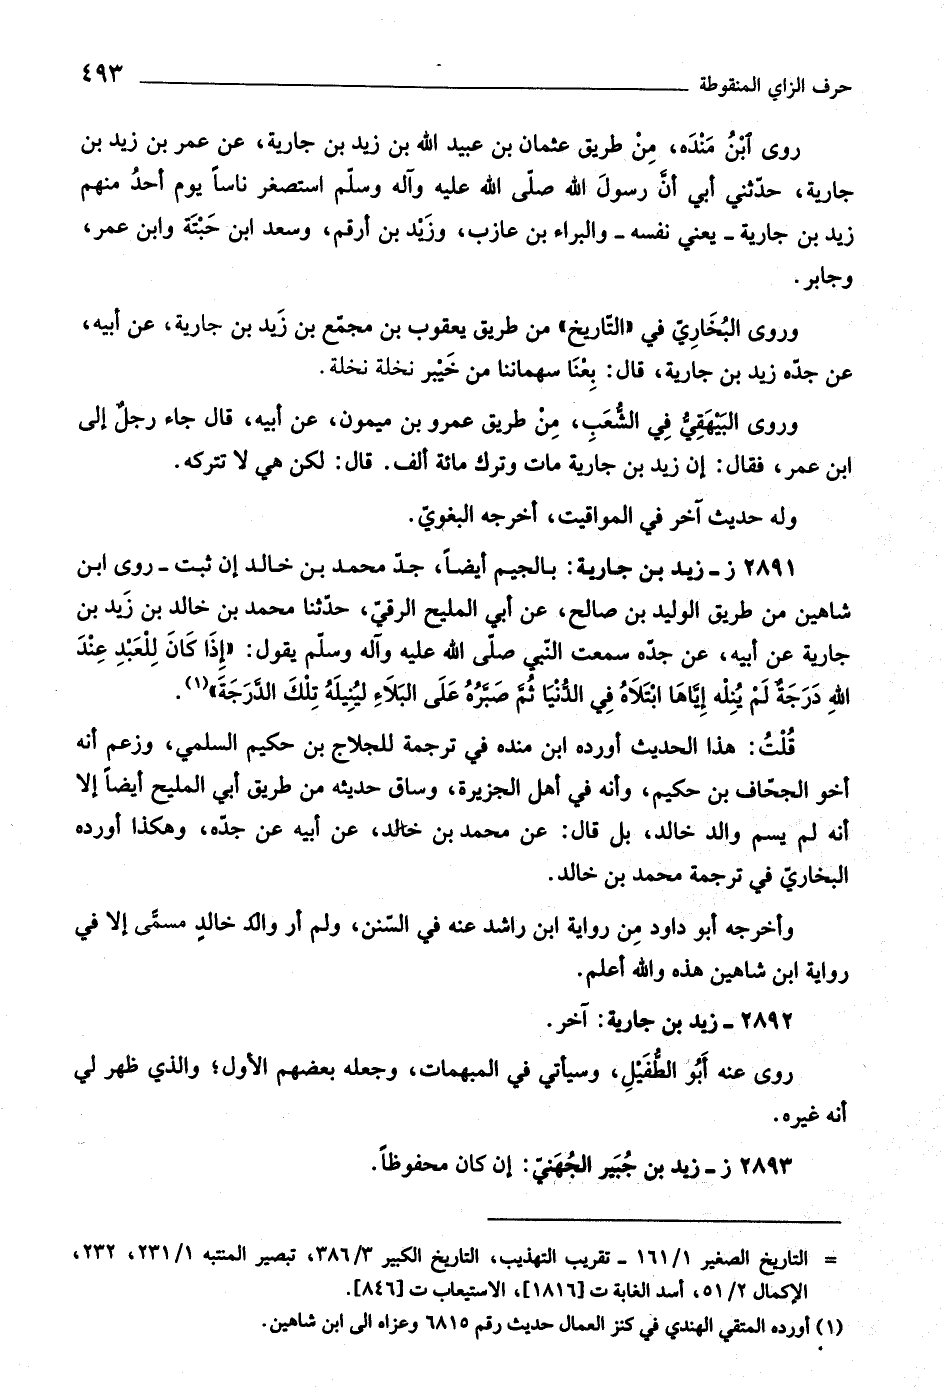 حرف الزاي المنقوطة ٤٩٣
روى ٱبْنُ مَنْدَه، مِنْ طريق عثمان بن عبيد الله بن زيد بن جارية، عن عمر بن زيد بن
جارية، حدّثني أبي أنَّ رسولَ الله صلّى الله عليه وآله وسلّم استصغر ناساً يوم أحدُ منهم
زيد بن جارية ـ يعني نفسه ـ والبراء بن عازب، وزَيْد بن أرقم، وسعد ابن حَبْتَة وابن عمر،
وجابر.
وروى البُخَارِيّ في «التّاريخ» من طريق يعقوب بن مجمّع بن زَيد بن جارية، عن أبيه،
عن جدّه زيد بن جارية، قال: بِعْنَا سهماننا من خَيْبر نخلة نخلة.
وروى البَيْهَقِيُّ فِي الشُّعَبِ، مِنْ طريق عمرو بن ميمون، عن أبيه، قال جاء رجلٌ إلى
ابن عمر، فقال: إن زيد بن جارية مات وترك مائة ألف. قال: لكن هي لا تتركه.
وله حديث آخر في المواقيت، أخرجه البغويّ.
٢٨٩١ ز ـ زيد بن جارية: بالجيم أيضاً، جدّ محمد بن خالد إن ثبت ـ روى ابن
شاهين من طريق الوليد بن صالح، عن أبي المليح الرقيّ، حدّثنا محمد بن خالد بن زَيد بن
جارية عن أبيه، عن جدّه سمعت النّبي صلّى الله عليه وآله وسلّم يقول: «إِذَا كَانَ لِلْعَبْدِ عِنْدَ
اللهِ دَرَجَةٌ لَمْ يُنِلْه إيَّاهَا ابْتَلَاهُ فِي الدُّنْيَا ثُمَّ صَبَّرُهُ عَلَى البَلَاءِ لِيُنِيلَهُ تِلْكَ الدَّرَجَةَ»(١).
قُلْتُ: هذا الحديث أورده ابن منده في ترجمة للجلاج بن حكيم السلمي، وزعم أنه
أخو الجحّاف بن حكيم، وأنه في أهل الجزيرة، وساق حديثه من طريق أبي المليح أيضاً إلا
أنه لم يسم والد خالد، بل قال: عن محمد بن خالد، عن أبيه عن جدّه، وهكذا أورده
البخاريّ في ترجمة محمد بن خالد.
وأخرجه أبو داود مِن رواية ابن راشد عنه في السّنن، ولم أر والد خالدٍ مسمًّى إلا في
رواية ابن شاهين هذه والله أعلم.
٢٨٩٢ ـ زيد بن جارية: آخر.
روى عنه أَبُو الطُّفَيْلِ، وسيأتي في المبهمات، وجعله بعضهم الأول؛ والذي ظهر لي
أنه غيره.
٢٨٩٣ ز ـ زيد بن جُبَير الجُهَنيّ: إن كان محفوظاً.
= التاريخ الصغير ١/ ١٦١ ـ تقريب التهذيب، التاريخ الكبير ٣/ ٣٨٦، تبصير المنتبه ١/ ٢٣١، ٢٣٢،
الإكمال ٢/ ٥١، أسد الغابة ت [١٨١٦]، الاستيعاب ت [٨٤٦].
(١) أورده المتقي الهندي في كنز العمال حديث رقم ٦٨١٥ وعزاه الى ابن شاهين.